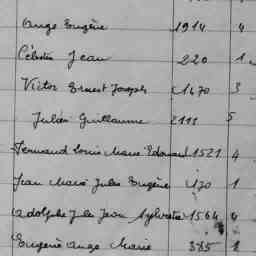 Ange Eugène 1914 4
Célestin Jean 220 1
Victor Ernest Joseph 1470 3
Julien Guillaume 2111 5
Fernand Louis Marie Edouard 1521 4
Jean Marie Jules Eugène 130 1
Adolphe Jules Jean Sylvestre 1564 4
Eugène Ange Marie 385 1